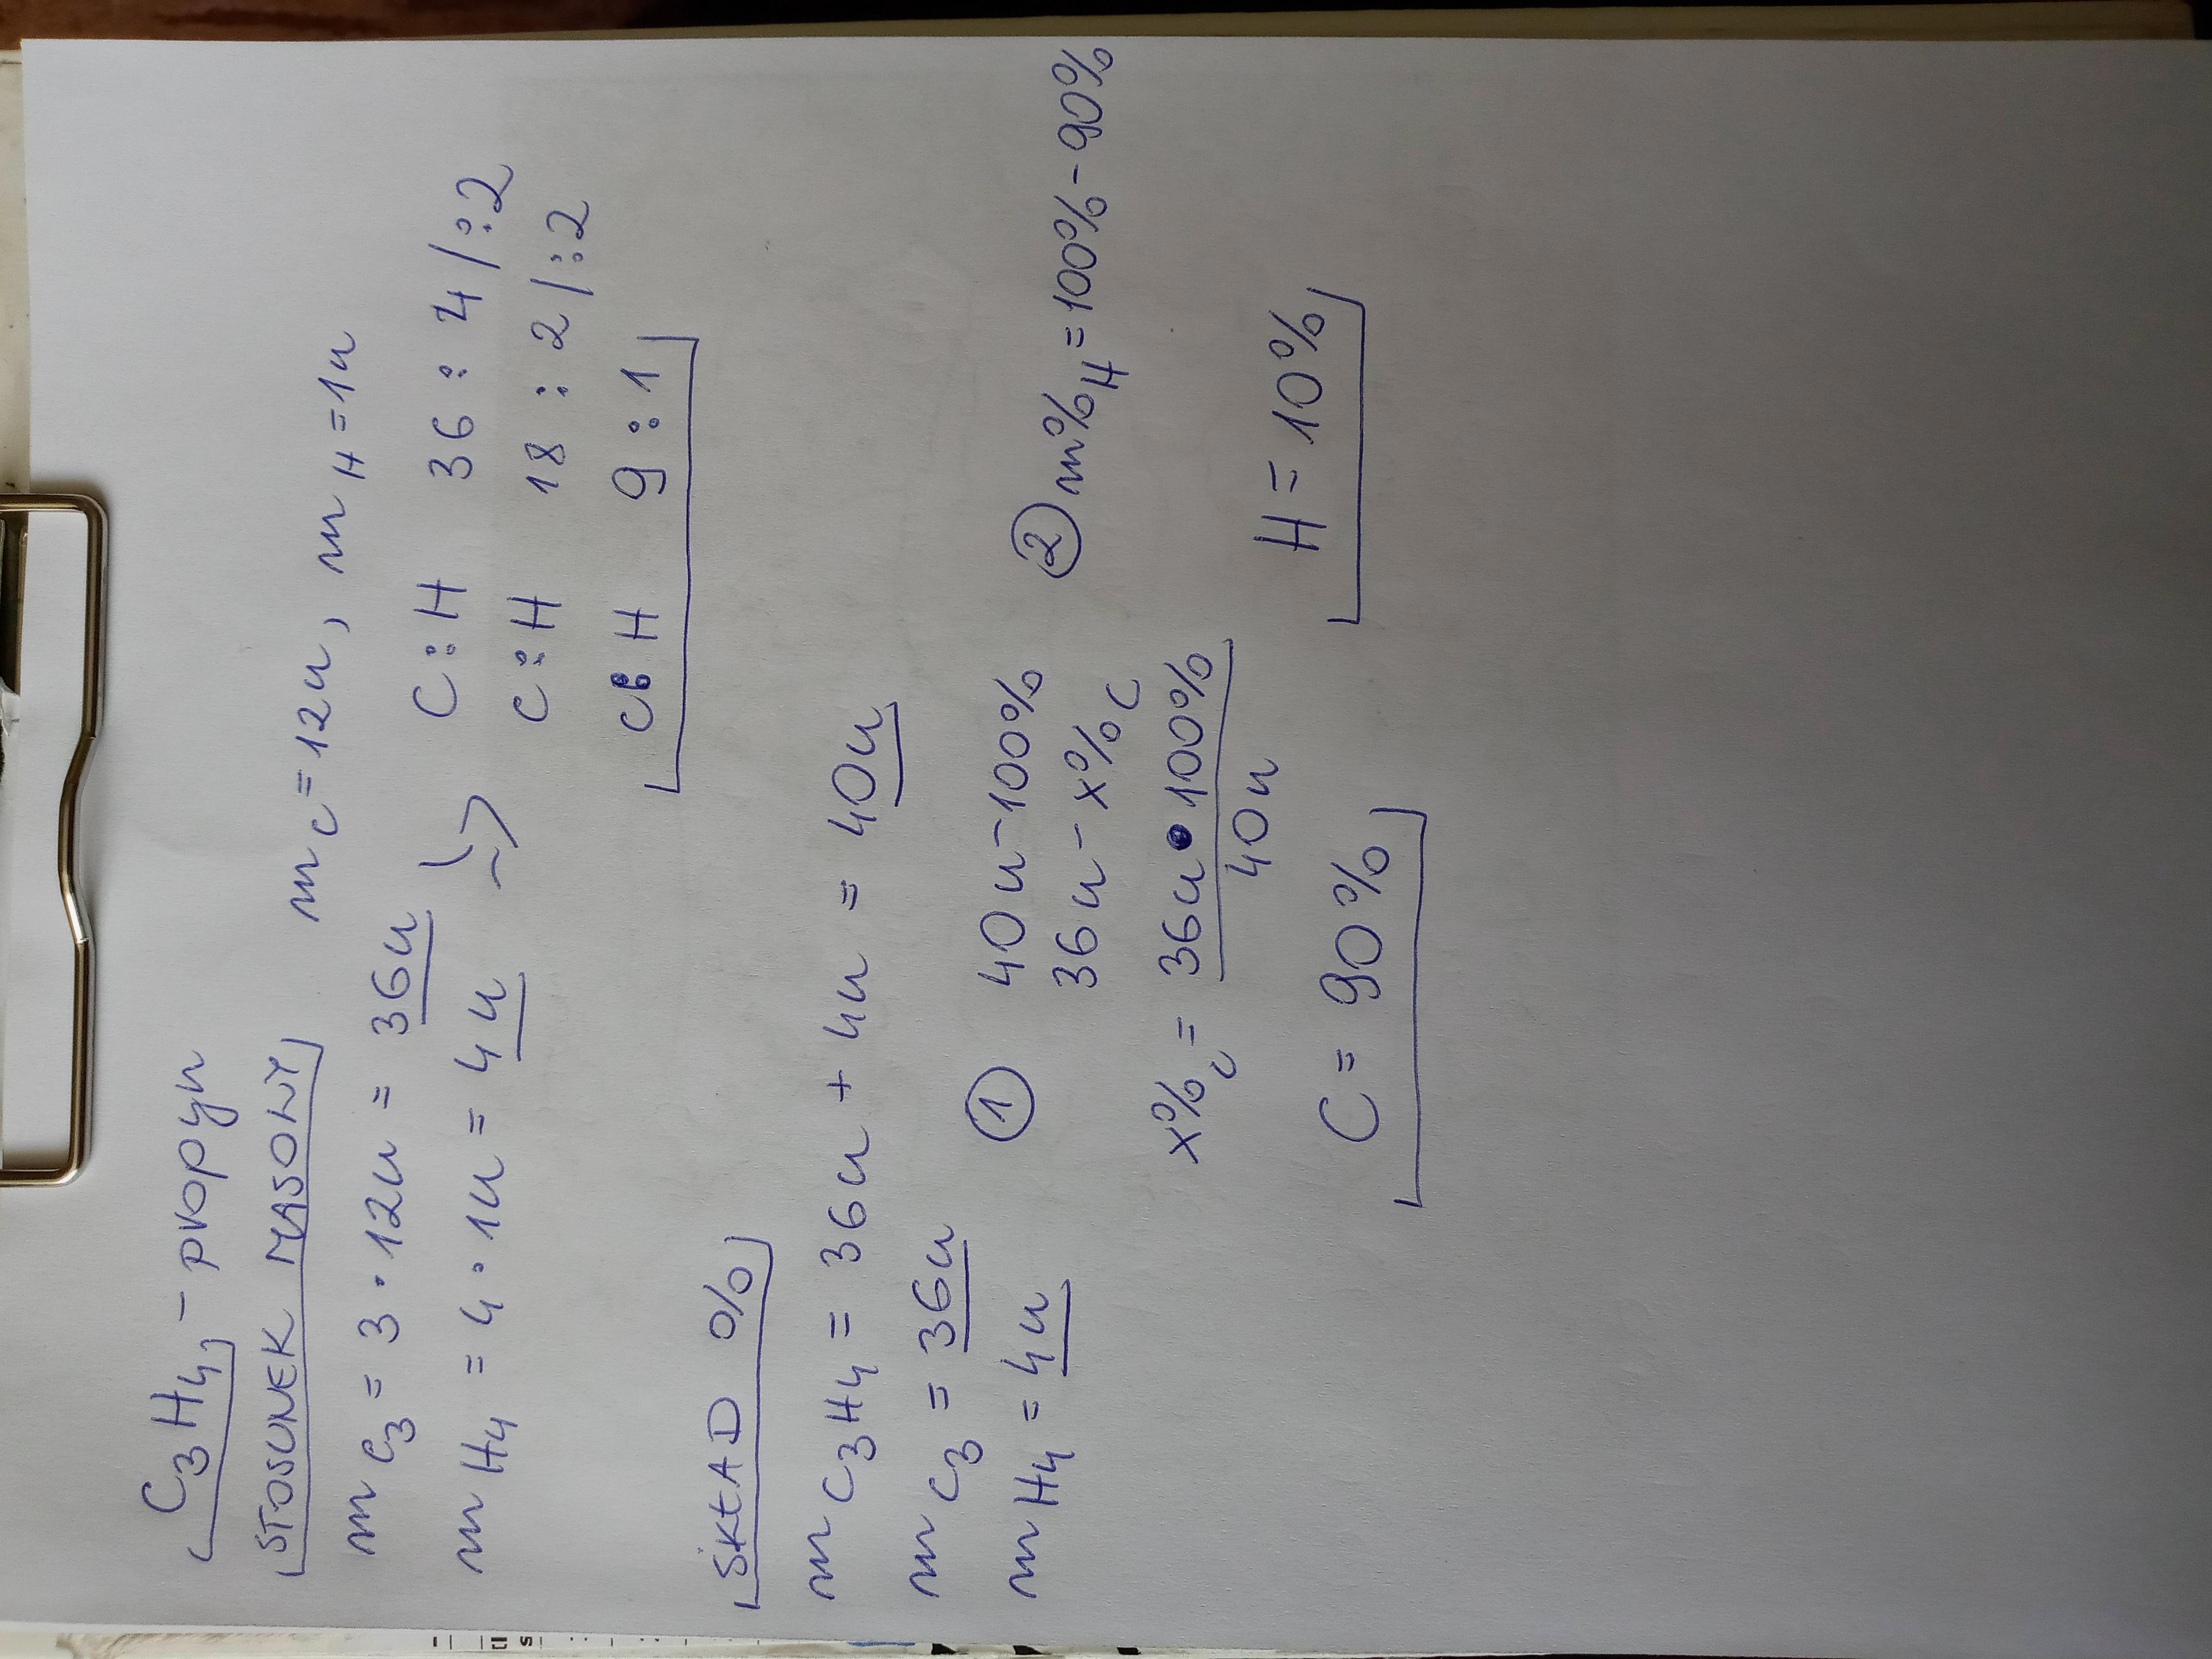 C₃H₄ - propyn
STOSUNEK MASOWY
m c = 12u, m H = 1u
m C₃ = 3 · 12u = 36u
m H₄ = 4 · 1u = 4u
C : H 36 : 4 / : 2
C : H 18 : 2 / : 2
C : H 9 : 1
SKŁAD %
m C₃H₄ = 36u + 4u = 40u
m C₃ = 36u
m H₄ = 4u
① 40u - 100%
36u - x% C
x% C = 36u · 100% / 40u
C = 90%
② m% H = 100% - 90%
H = 10%